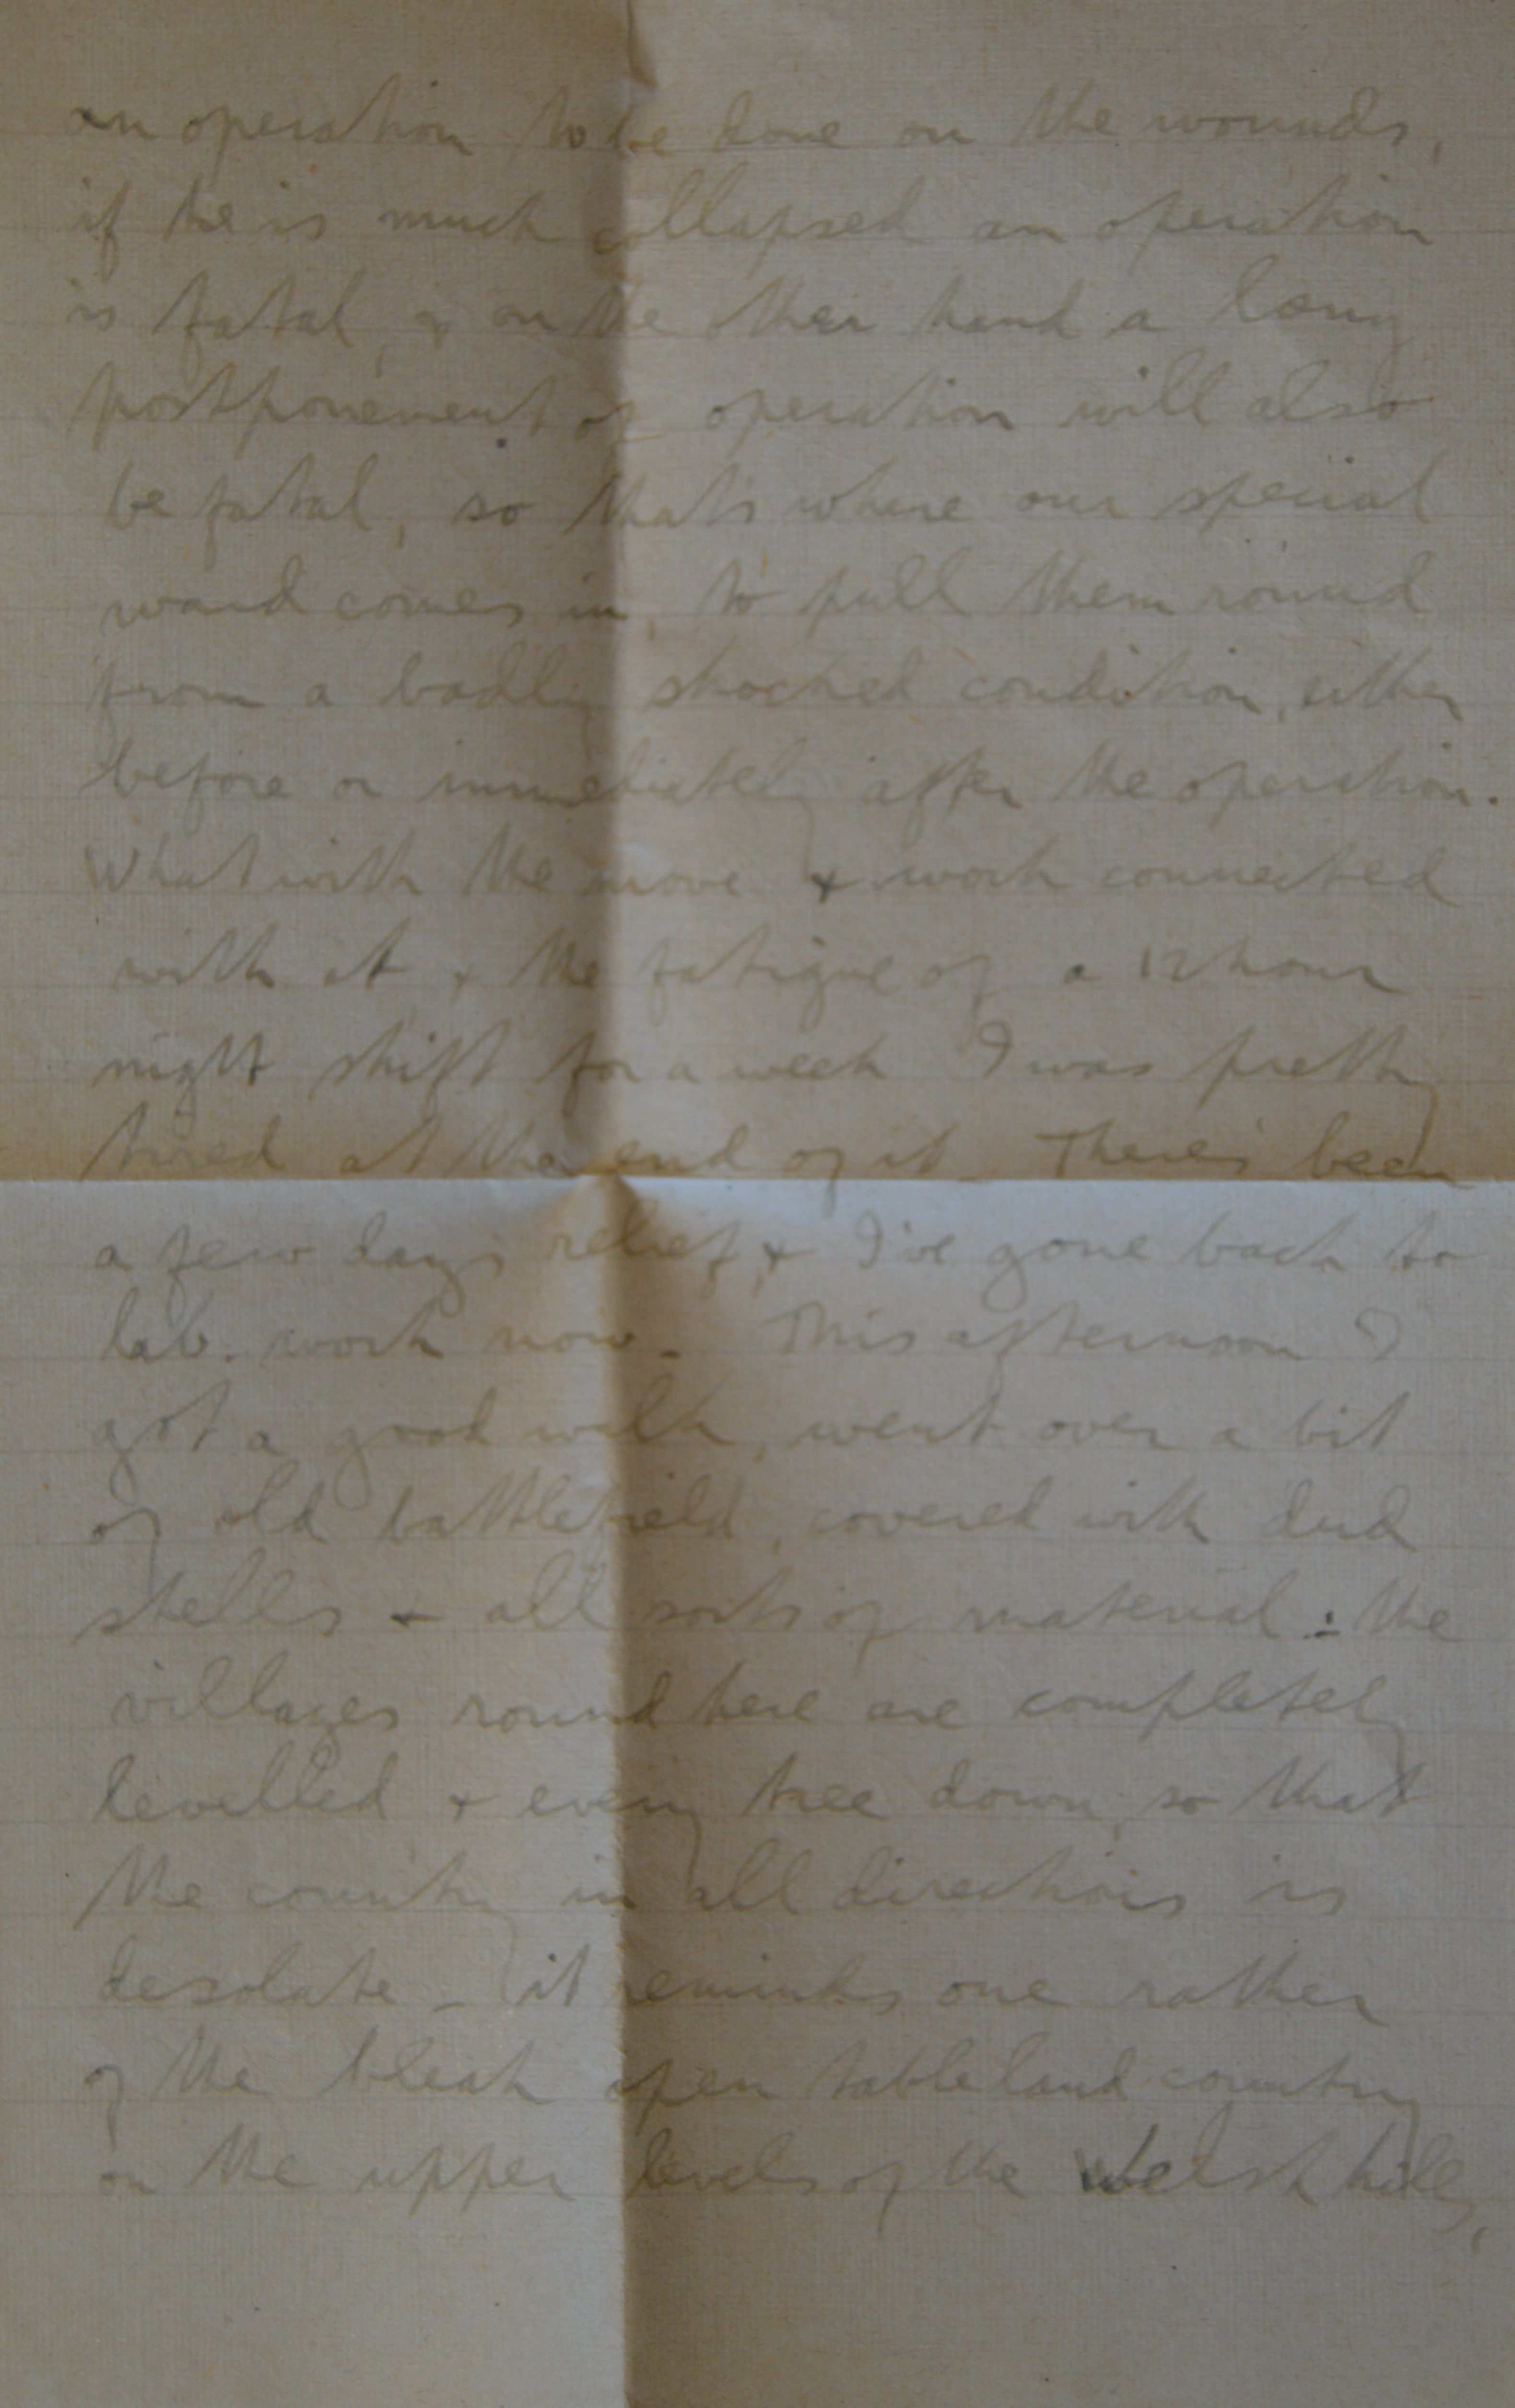 an operation to be done on the wounds,
if he is much collapsed an operation
is fatal, & on the other hand a long
postponement of operation will also
be fatal, so that's where our special
ward comes in, to pull them round
from a badly shocked condition, either
before or immediately after the operation.
What with the move & work connected
with it & the fatigue of a 12 hour
night shift for a week I was pretty
tired at the end of it. There's been
a few days relief, & I've gone back to
lab. work now. This afternoon I
got a good walk, went over a bit
of old battlefield, covered with dud
shells & all sorts of material: the
villages round here are completely
levelled & every tree down, so that
the country in all directions is
desolate – it reminds one rather
of the bleak open tableland country
on the upper levels of the Welsh hills,